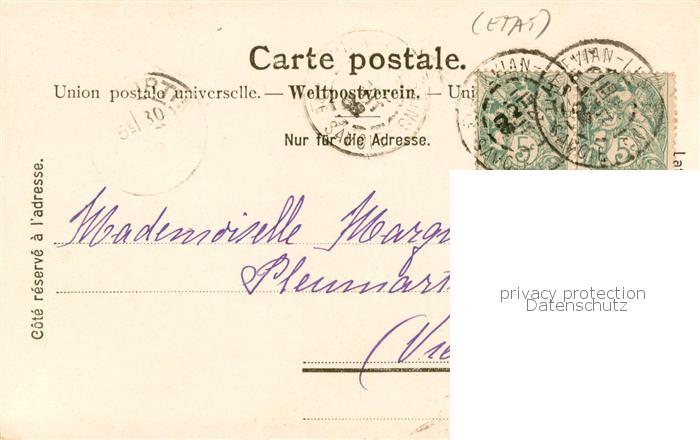 (ETAT)
Carte postale.
Union postale universelle. — Weltpostverein. — Uni
Nur für die Adresse.
Côté réservé à l'adresse.
EVIAN-LE
SAVOIE
5c
5c
Lat
Mademoiselle Margu
Pleumart
(Vie
privacy protection
Datenschutz